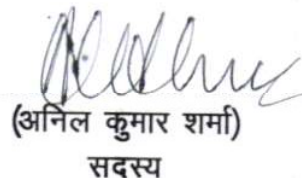 (अनिल कुमार शर्मा)
सदस्य